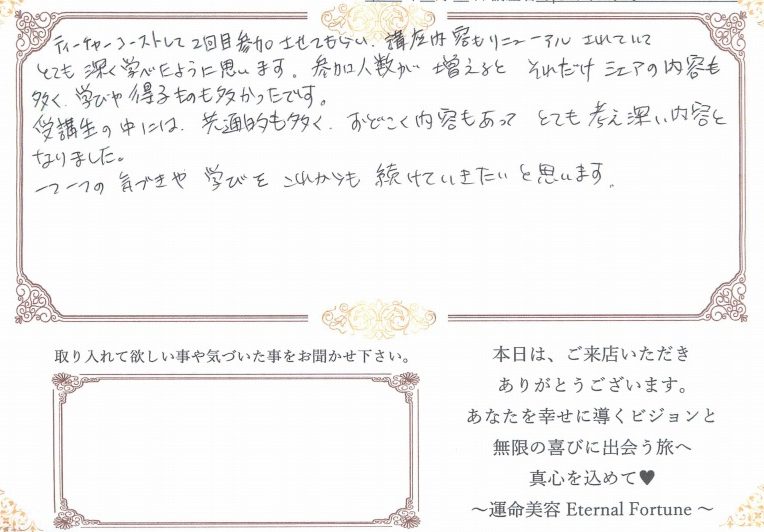 ティーチャーコースとして2回目参加させてもらい、講座内容もリニューアルされていて
とても深く学べたように思います。参加人数が増えると それだけシェアの内容も
多く、学びや得るものも多かったです。
受講生の中には、共通的も多く、おどろく内容もあって とても考え深い内容と
なりました。
一つ一つの気づきや 学びを これからも 続けていきたいと思います。
取り入れて欲しい事や気づいた事をお聞かせ下さい。
本日は、ご来店いただき
ありがとうございます。
あなたを幸せに導くビジョンと
無限の喜びに出会う旅へ
真心を込めて♥
～運命美容 Eternal Fortune ～